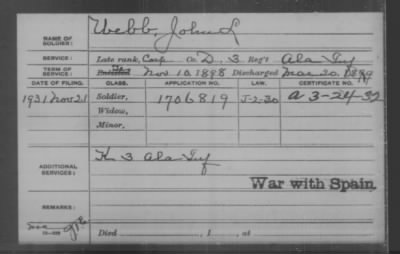 NAME OF SOLDIER: Webb, John L
SERVICE: Late rank, Corp Co. D, 3 Reg't Ala Inf
TERM OF SERVICE: Enlisted Nov 10, 1898 Discharged Mar 20, 1899
DATE OF FILING. CLASS. APPLICATION NO. LAW. CERTIFICATE NO.
1931 Nov 21 Soldier, 1706819 J-2-30 A 3-24-32
Widow,
Minor,
ADDITIONAL SERVICES: K 3 Ala Inf
War with Spain.
REMARKS:
Died , 1 , at